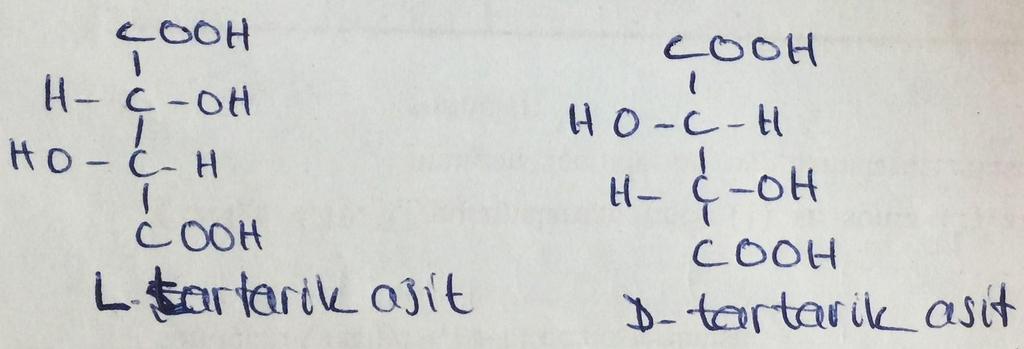 COOH
H- C -OH
HO - C - H
COOH
L-tartarik asit
COOH
HO -C-H
H- C -OH
COOH
D- tartarik asit